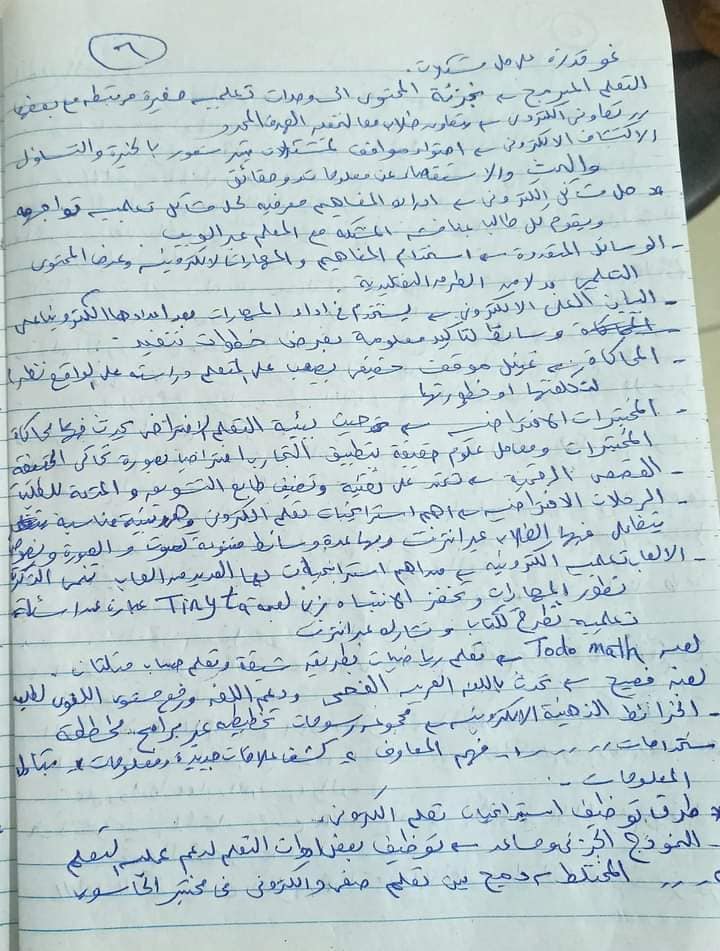 ٦
نمو قدرة على حل مشكلات.
التعلم المبرمج ← تجزئة المحتوى الى وحدات تعليمية صغيرة مرتبطة مع بعضها
〃 تعاوني الكتروني ← يتعاون طلاب معا لتنفيذ الهدف المحدد
الاكتشاف الالكتروني ← احتواء مواقف لمشكلات شعور بالحيرة والتساؤل
والبحث والاستقصاء عن معلومات وحقائق
* حل مشكلات الكتروني ← المفاهيم معرفية لحل مشاكل تعليمية تواجهه
ويقوم كل طالب بمناقشة المشكلة مع المعلم عبر الويب
- الوسائل المتعددة ← استخدام المفاهيم والمهارات الالكترونية وعرض المحتوى
التعليمي بدلا من الطرق التقليدية.
- البيان العملي الالكتروني ← يستخدم في اداء المهارات بعد اعدادها الكترونيا على
وسائط لتأكيد معلومة بغرض خطوات تنفيذ.
- المحاكاة ← تمثيل موقف حقيقي يصعب على المتعلم دراسته على الواقع نظرا
لتكلفتها او خطورتها
- المختبرات الافتراضية ← حيث بيئة التعلم الافتراضي تحدث فيها محاكاة
المختبرات ومعامل علوم حقيقة لتطبيق التجارب افتراضا بصورة تحاكي الحقيقة
- القصص الرقمية ← تعتمد على تقنية وتضيف طابع التشويق والمتعة للطلبة
- الرحلات الافتراضية ← اهم استراتيجيات تعلم الكتروني وهو تقنية مناسبة
يتفاعل فيها الطلاب عبر انترنت وبمساعدة وسائط متنوعة كصوت والصورة و
- الالعاب تعليمية الكترونية ← من اهم استراتيجيات لها العديد من العاب تنمي
تطور المهارات وتحفز الانتباه زي لعبة Tiny tap عبارة عن اسئلة
تعليمية تطرح لكتاب وتشارك عبر انترنت
لعبة Todo math ← تعلم رياضيات بطريقة شيقة وتعلم حساب مثلثات.
لعبة فصيح ← تحدث باللغة العربية الفصحى ودعم اللغة ورفع مستوى اللغوي لطلبة
- الخرائط الذهنية الالكترونية ← مجموعة رسومات تخطيطية عبر برامج مخططة
〃 〃 〃 فهم المعارف و كشف علاقات جديدة ومعلومات
المعلومات.
* طرق توظيف استراتيجيات تعلم الكتروني.
- النموذج الجزئي ومساعد ← توظيف بعض ادوات التعلم لدعم عملية التعلم
〃 المختلط ← دمج بين تعليم صفي والكتروني في مختبر الحاسوب